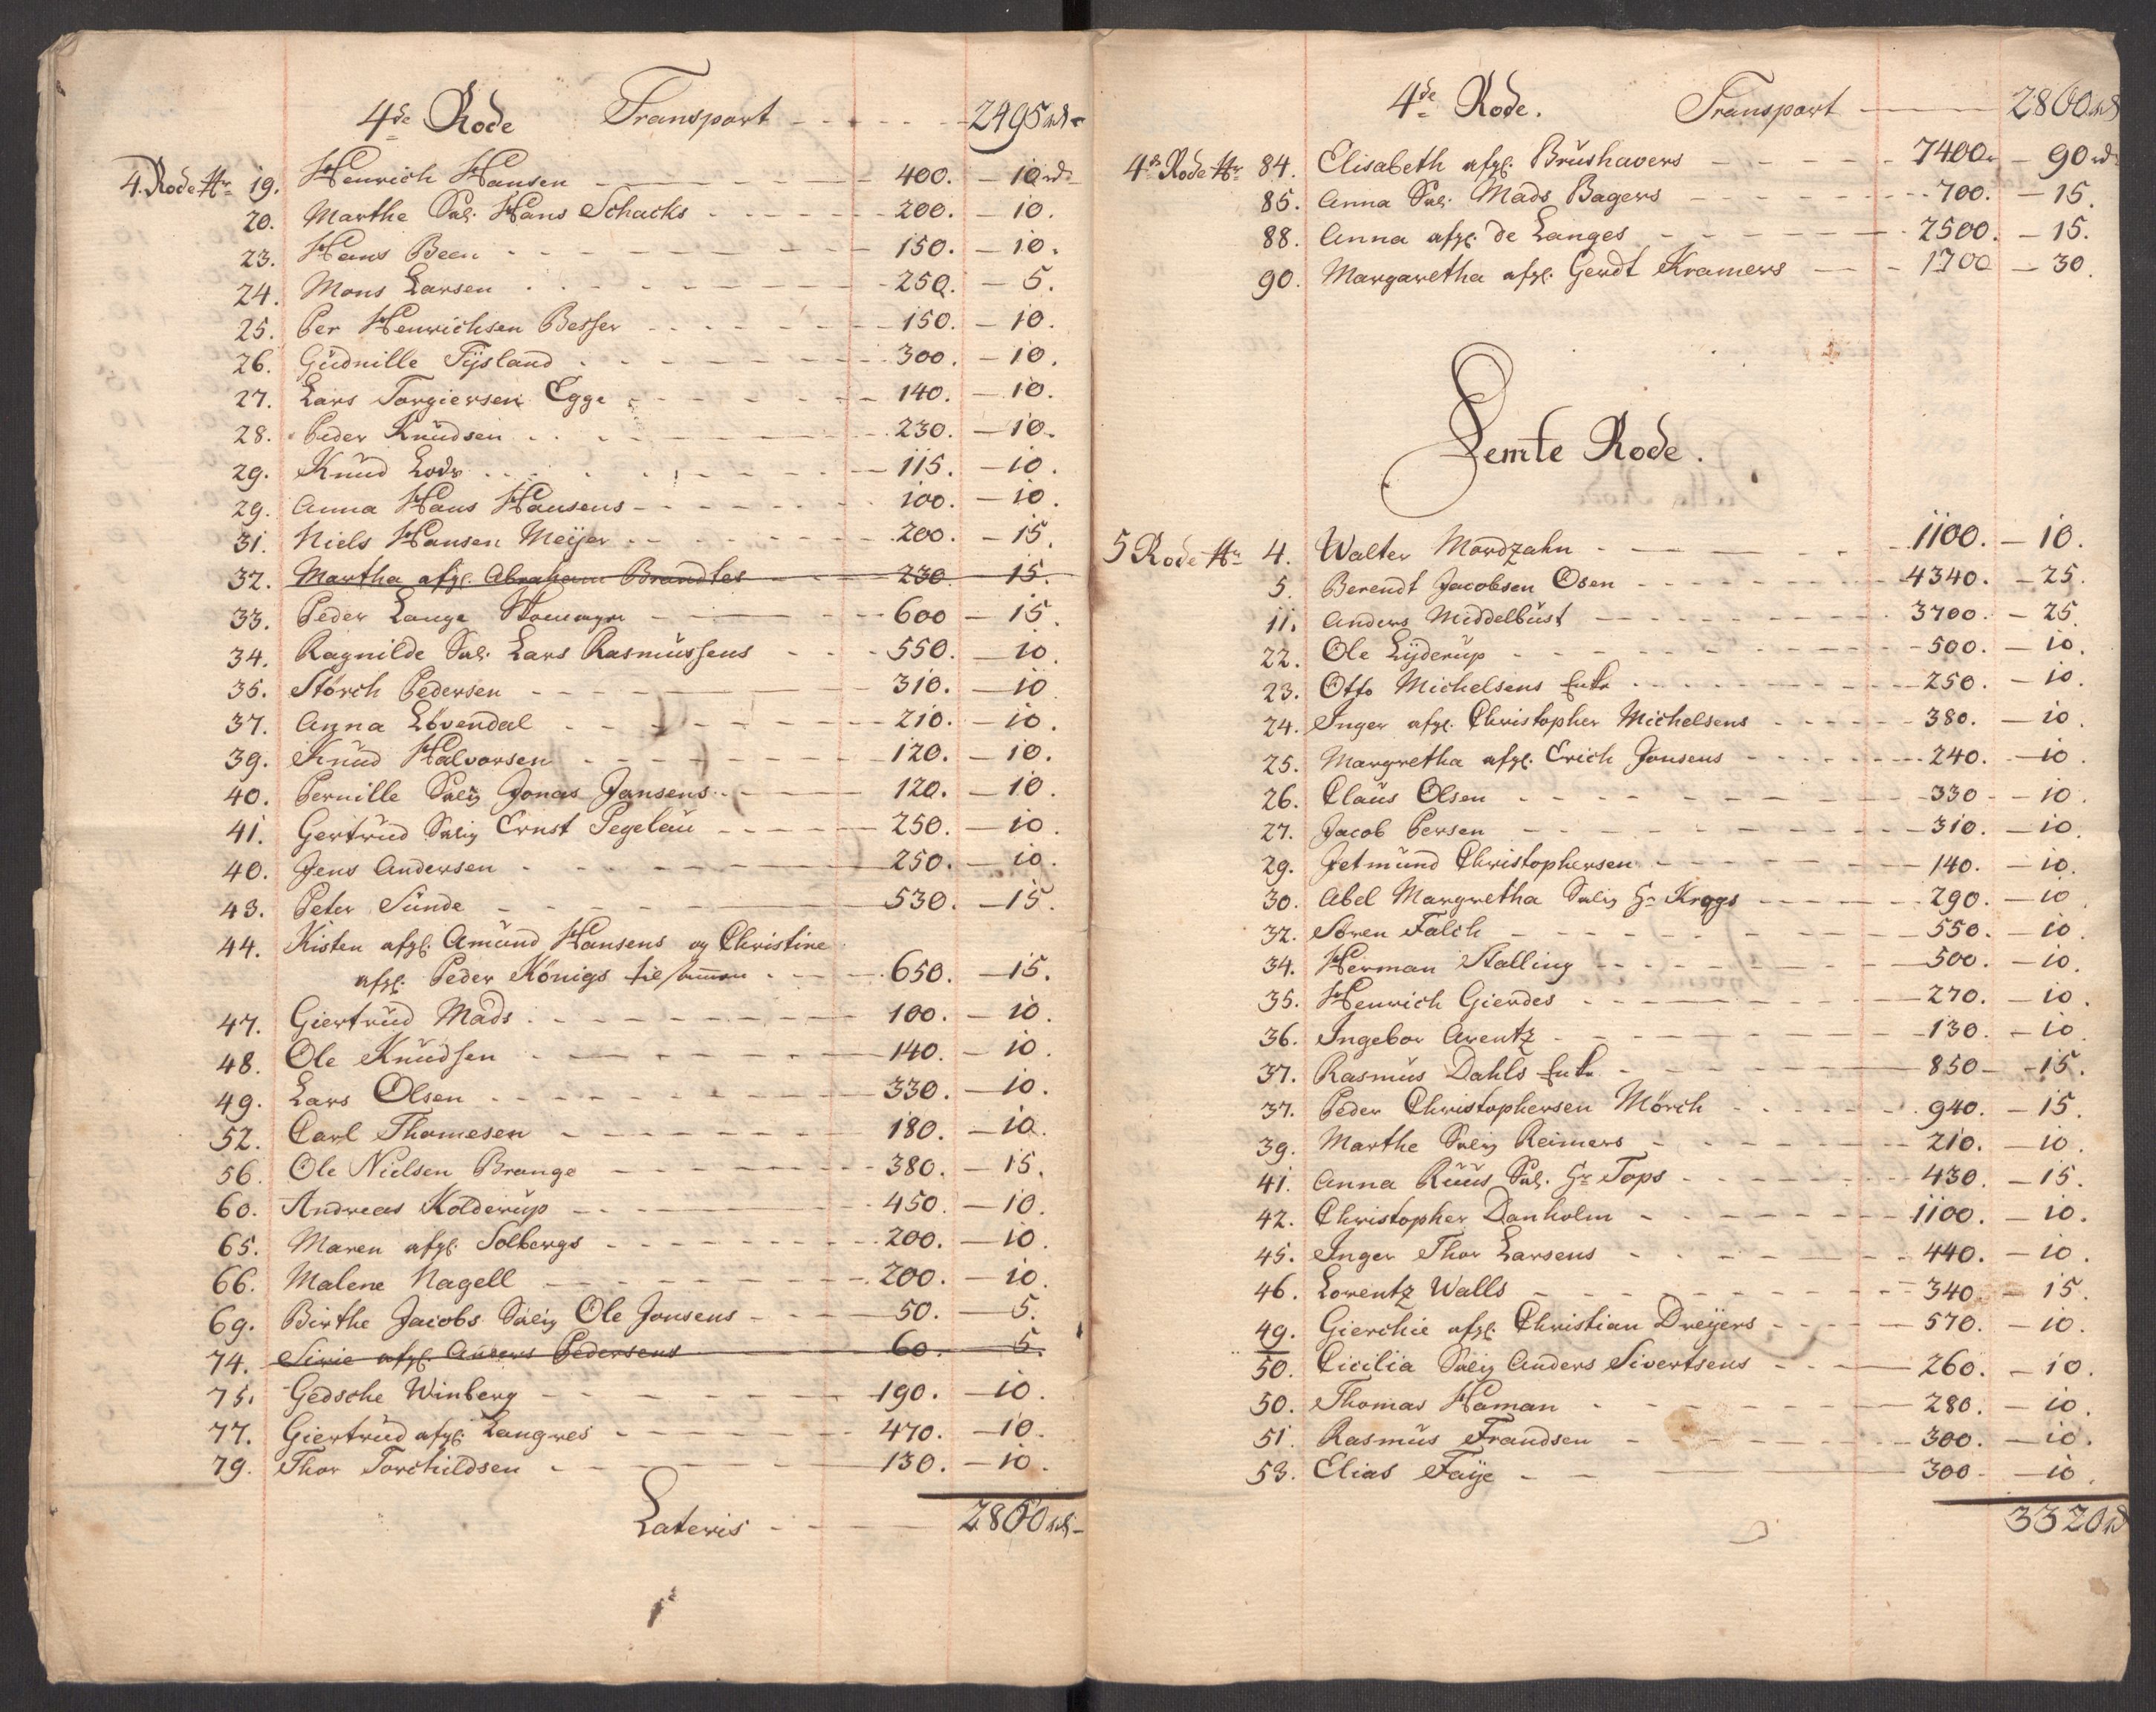 4de Rode Transport - - - 2495 rd -
4. Rode Nr 19. Henrich Hansen - - - 400. - 10 rd
20. Marthe Sal. Hans Schacks - - - 200. - 10.
23. Hans Been - - - 150. - 10.
24. Mons Larsen - - - 250. - 5.
25. Per Henrichsen Besser - - - 150. - 10.
26. Güdnille Tÿsland - - - 300. - 10.
27. Lars Torgiersen Egge - - - 140. - 10.
28. Peder Knüdsen - - - 230. - 10.
29. Knüd Lods - - - 115. - 10.
29. Anna Hans Hansens - - - 100. - 10.
31. Niels Hansen Meÿer - - - 200. - 15.
32. Martha afgl. Abraham Brandtes - - - 230. - 15.
33. Peder Lange - - - 600 - 15.
34. Ragnilde Sal. Lars Rasmüssens - - - 550. - 10.
35. Störch Pedersen - - - 310. - 10
37. Anna Lövendal - - - 210. - 10.
39. Knüd Halvorsen - - - 120. - 10.
40. Pernille Salig Jonas Jansens - - - 120. - 10.
41. Gertrüd Salig Ernst Pegelaü - - - 250. - 10.
40. Jens Andersen - - - 250. - 10.
43. Peter Sünde - - - 530. - 15.
44. Kisten afgl. Amünd Hansens og Christine
afgl. Peder Königs tilsammen - - - 650. - 15.
47. Giertrüd Mads - - - 100. - 10.
48. Ole Knüdsen - - - 140. - 10.
49. Lars Olsen - - - 330. - 10.
52. Carl Thomesen - - - 180. - 10.
56. Ole Nielsen Brange - - - 380. - 15.
60. Andreas Kolderüp - - - 450. - 10.
65. Maren afgl. Solbergs - - - 200. - 10.
66. Malene Nagell - - - 200. - 10.
69. Birthe Jacobs Salig Ole Jonsens - - - 50. - 5.
74. Sirie afgl. Anders Pedersens - - - 60. - 5.
75. Gedsche Winberg - - - 190. - 10.
77. Giertrüd afgl. Langres - - - 470. - 10.
79. Thor Torchildsen - - - 130. - 10.
Lateris - - - 2860 rd -
4de Rode. Transport - - - 2860 rd
4de Rode Nr 84. Elisabeth afgl. Brüshavers - - - 7400. - 90 rd
85. Anna Sal. Mads Bagers - - - 700. - 15.
88. Anna afgl. de Langes - - - 2500. - 15.
90. Margaretha afgl. Gerdt Kramers - - - 1700 - 30.
Femte Rode.
5 Rode Nr 4. Walter Mordzahn - - - 1100. - 10.
5. Berendt Jacobsen Osen - - - 4340. - 25.
11. Anders Middelbüst - - - 3700. - 25.
22. Ole Lÿderüp - - - 500. - 10.
23. Otto Michelsens Enke - - - 250. - 10.
24. Inger afgl. Christopher Michelsens - - - 380. - 10.
25. Margretha afgl. Erich Jonsens - - - 240. - 10
26. Claüs Olsen - - - 330 - 10.
27. Jacob Persen - - - 310. - 10.
29. Jetmünd Christophersen - - - 140. - 10.
30. Abel Margretha Salig Hr Krogs - - - 290. - 10
32. Sören Falch - - - 550. - 10
34. Herman Stalling - - - 500. - 10.
35. Henrich Gierdes - - - 270. - 10.
36. Ingebor Arentz - - - 130. - 10
37. Rasmüs Dahls Enke - - - 850 - 15.
37. Peder Christophersen Mörch - - - 940. - 15.
39. Marthe Salig Reimers - - - 210. - 10
41. Anna Rüüs Sal. Hr Tops - - - 430. - 15.
42. Christopher Danholm - - - 1100. - 10.
45. Inger Thor Larsens - - - 440. - 10
46. Lorentz Walls - - - 340. - 15.
49. Gierchie afgl. Christian Dreÿers - - - 570. - 10.
50. Cicilia Salig Anders Sivertsens - - - 260. - 10.
50. Thomas Haman - - - 280. - 10.
51. Rasmüs Frandsen - - - 300. - 10.
53. Elias Faÿe - - - 300 - 10.
3320 rd